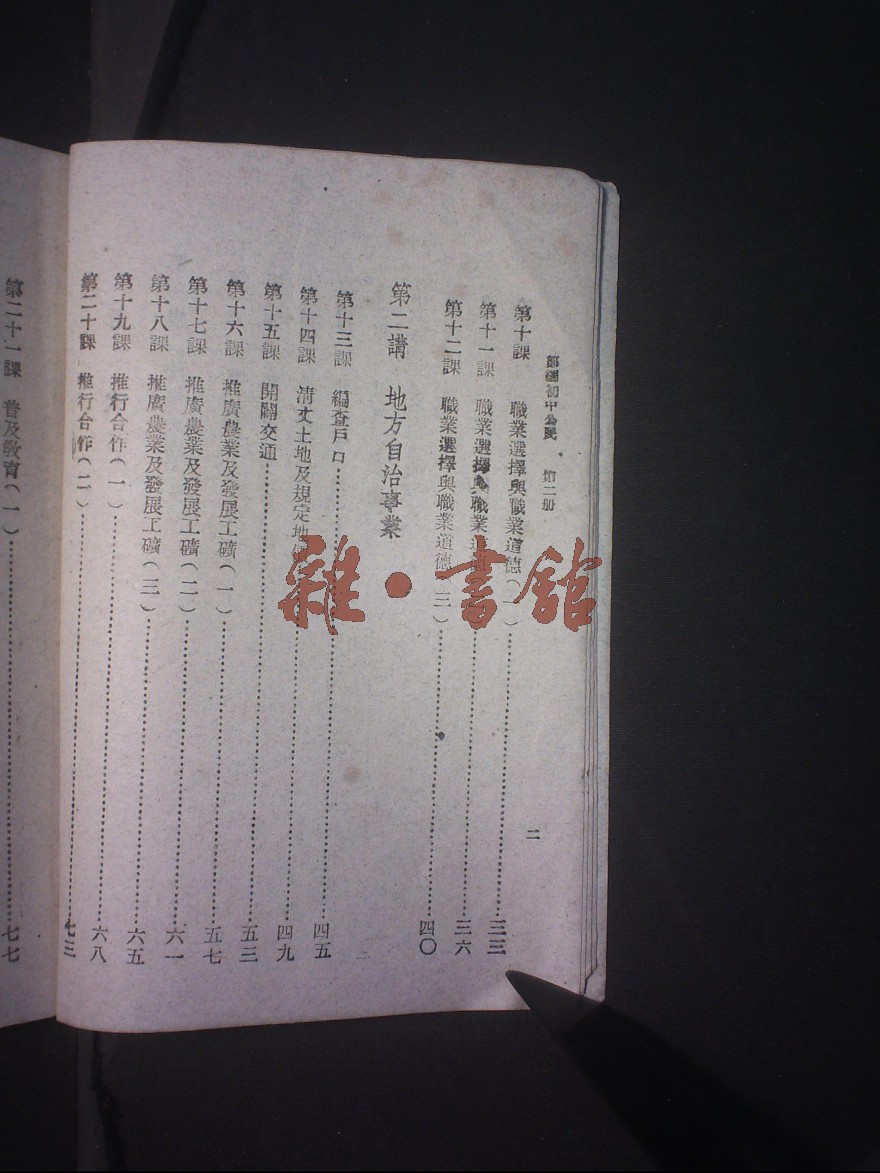 部編初中公民　第二冊
二
第十課　職業選擇與職業道德（一）……三三
第十一課　職業選擇與職業道德……三六
第十二課　職業選擇與職業道德（三）……四〇
第二講　地方自治事業
第十三課　編查戶口……四五
第十四課　清丈土地及規定地……四九
第十五課　開闢交通……五三
第十六課　推廣農業及發展工礦（一）……五七
第十七課　推廣農業及發展工礦（二）……六一
第十八課　推廣農業及發展工礦（三）……六五
第十九課　推行合作（一）……六八
第二十課　推行合作（二）……七三
第二十一課　普及教育（一）……七七
雜·書館